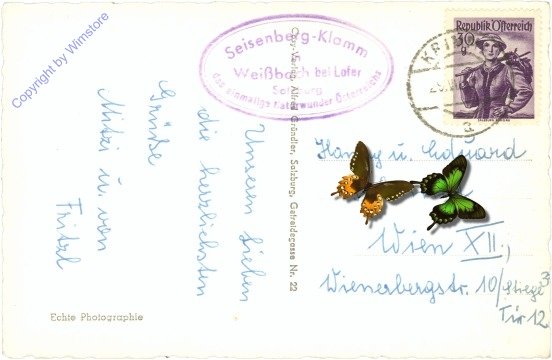 Copyright by Wimstore
Seisenberg-Klamm
Weißbach bei Lofer
Salzburg
das einmalige Naturwunder Österreichs
Republik Österreich
30 g
KRIMML
Unseren lieben
die herzlichsten
Grüsse
Mitzi u. von
Fritzl
Verlag Alfred Gründler, Salzburg, Getreidegasse Nr. 22
Hansy u. Eduard
Wien XII.,
Wienerbergstr. 10/Stiege 3
Tür 12
Echte Photographie